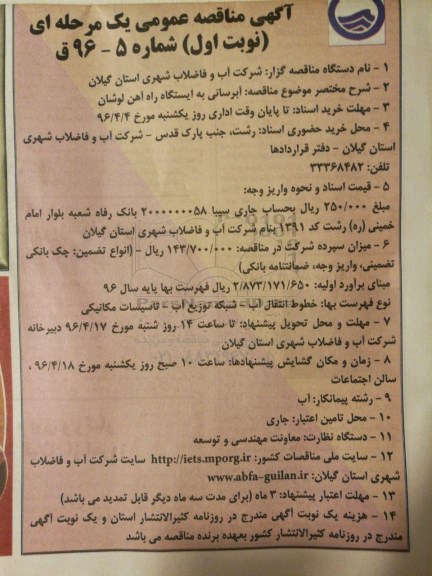 آگهی مناقصه عمومی یک مرحله ای
(نوبت اول) شماره ۵ - ۹۶ ق
۱ - نام دستگاه مناقصه گزار: شرکت آب و فاضلاب شهری استان گیلان
۲ - شرح مختصر موضوع مناقصه: آبرسانی به ایستگاه راه آهن لوشان
۳ - مهلت خرید اسناد: تا پایان وقت اداری روز یکشنبه مورخ ۹۶/۴/۴
۴ - محل خرید حضوری اسناد: رشت، جنب پارک قدس - شرکت آب و فاضلاب شهری
استان گیلان - دفتر قراردادها
تلفن: ۳۳۳۶۸۴۸۲
۵ - قیمت اسناد و نحوه واریز وجه:
مبلغ ۲۵۰/۰۰۰ ریال بحساب جاری سیبا ۲۰۰۰۰۰۰۰۵۸ بانک رفاه شعبه بلوار امام
خمینی (ره) رشت کد ۱۳۹۱ بنام شرکت آب و فاضلاب شهری استان گیلان
۶ - میزان سپرده شرکت در مناقصه: ۱۴۳/۷۰۰/۰۰۰ ریال - (انواع تضمین: چک بانکی
تضمینی، واریز وجه، ضمانتنامه بانکی)
مبنای برآورد اولیه: ۲/۸۷۳/۱۷۱/۶۵۰ ریال فهرست بها پایه سال ۹۶
نوع فهرست بها: خطوط انتقال آب - شبکه توزیع آب - تاسیسات مکانیکی
۷ - مهلت و محل تحویل پیشنهاد: تا ساعت ۱۴ روز شنبه مورخ ۹۶/۴/۱۷ دبیرخانه
شرکت آب و فاضلاب شهری استان گیلان
۸ - زمان و مکان گشایش پیشنهادها: ساعت ۱۰ صبح روز یکشنبه مورخ ۹۶/۴/۱۸ ،
سالن اجتماعات
۹ - رشته پیمانکار: آب
۱۰ - محل تامین اعتبار: جاری
۱۱ - دستگاه نظارت: معاونت مهندسی و توسعه
۱۲ - سایت ملی مناقصات کشور: http://iets.mporg.ir سایت شرکت آب و فاضلاب
شهری استان گیلان: www.abfa-guilan.ir
۱۳ - مهلت اعتبار پیشنهاد: ۳ ماه (برای مدت سه ماه دیگر قابل تمدید می باشد)
۱۴ - هزینه یک نوبت آگهی مندرج در روزنامه کثیرالانتشار استان و یک نوبت آگهی
مندرج در روزنامه کثیرالانتشار کشور بعهده برنده مناقصه می باشد